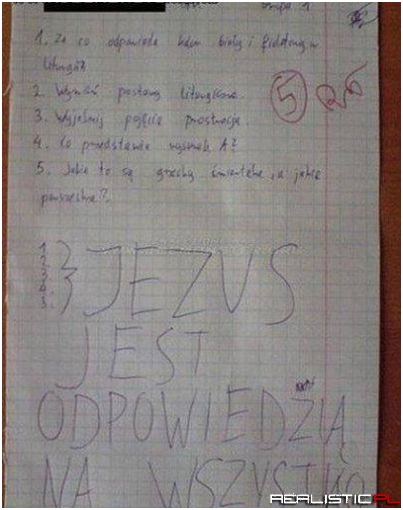 Grupa 1
1. Za co odpowiada kolor biały i fioletowy w
liturgii
2. Wymień postawy liturgiczne.
3. Wyjaśnij pojęcie prostracja.
4. Co przedstawia rysunek A?
5. Jakie to są grzechy śmiertelne, a jakie
powszednie?
5
1.
2.
3.
4.
5.
} JEZUS
JEST
ODPOWIEDZIĄ
NA WSZYSTKO
REALISTIC.PL